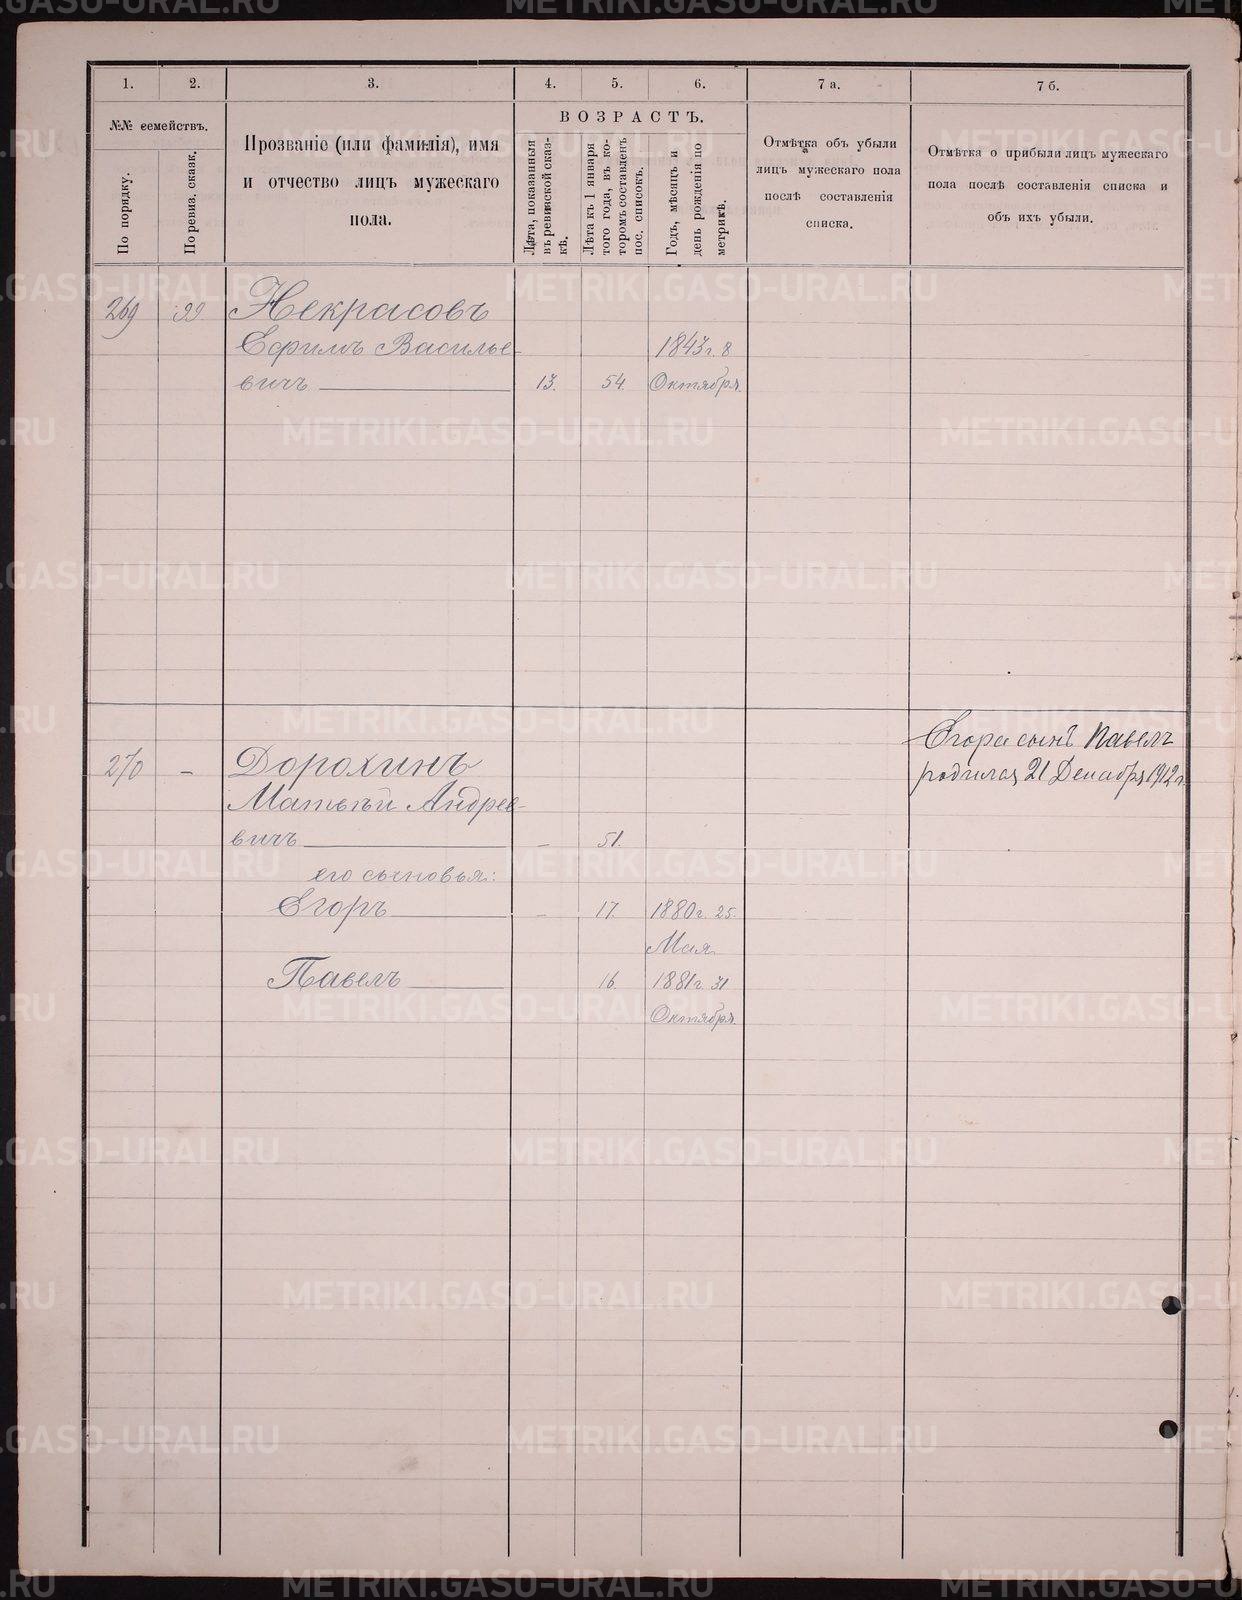 1. 2. 3. 4. 5. 6. 7 а. 7 б.
№№ семействъ.
По порядку.
По ревиз. сказк.
Прозваніе (или фамилія), имя
и отчество лицъ мужескаго
пола.
ВОЗРАСТЪ.
Лѣта, показанныя
въ ревизской сказ-
кѣ.
Лѣта къ 1 января
того года, въ ко-
торомъ составленъ
пос. списокъ.
Годъ, мѣсяцъ и
день рожденія по
метрикѣ.
Отмѣтка объ убыли
лицъ мужескаго пола
послѣ составленія
списка.
Отмѣтка о прибыли лицъ мужескаго
пола послѣ составленія списка и
объ ихъ убыли.
269 99 Некрасовъ
Ефимъ Василье- 1843 г. 8
вичъ 13. 54. Октября.
Егора сынъ Павелъ
270 - Дорохинъ родился 21 Декабря 1912 г.
Матвѣй Андрее-
вичъ - 51.
его сыновья:
Егоръ - 17. 1880 г. 25.
Мая
Павелъ 16. 1881 г. 31
Октября.
METRIKI.GASO-URAL.RU